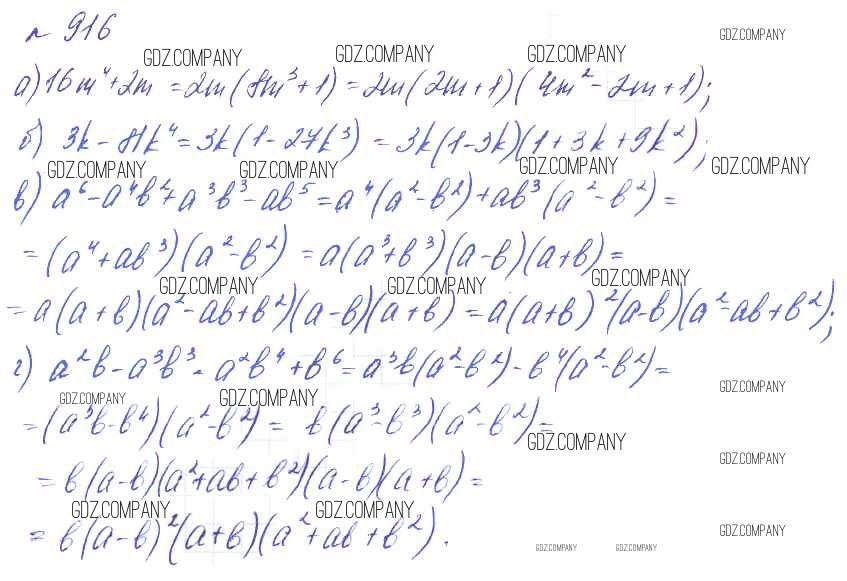 № 916
GDZ.COMPANY
GDZ.COMPANY GDZ.COMPANY GDZ.COMPANY
а) 16m⁴+2m = 2m(8m³+1) = 2m(2m+1)(4m²-2m+1);
б) 3k - 81k⁴ = 3k(1-27k³) = 3k(1-3k)(1+3k+9k²);
GDZ.COMPANY GDZ.COMPANY GDZ.COMPANY GDZ.COMPANY
в) a⁶-a⁴b²+a³b³-ab⁵ = a⁴(a²-b²)+ab³(a²-b²) =
= (a⁴+ab³)(a²-b²) = a(a³+b³)(a-b)(a+b) =
GDZ.COMPANY GDZ.COMPANY GDZ.COMPANY
= a(a+b)(a²-ab+b²)(a-b)(a+b) = a(a+b)²(a-b)(a²-ab+b²);
г) a²b - a³b³ - a²b⁴ + b⁶ = a³b(a²-b²) - b⁴(a²-b²) =
GDZ.COMPANY GDZ.COMPANY GDZ.COMPANY
= (a³b-b⁴)(a²-b²) = b(a³-b³)(a²-b²) =
GDZ.COMPANY GDZ.COMPANY
= b(a-b)(a²+ab+b²)(a-b)(a+b) =
GDZ.COMPANY GDZ.COMPANY
= b(a-b)²(a+b)(a²+ab+b²).
GDZ.COMPANY GDZ.COMPANY GDZ.COMPANY